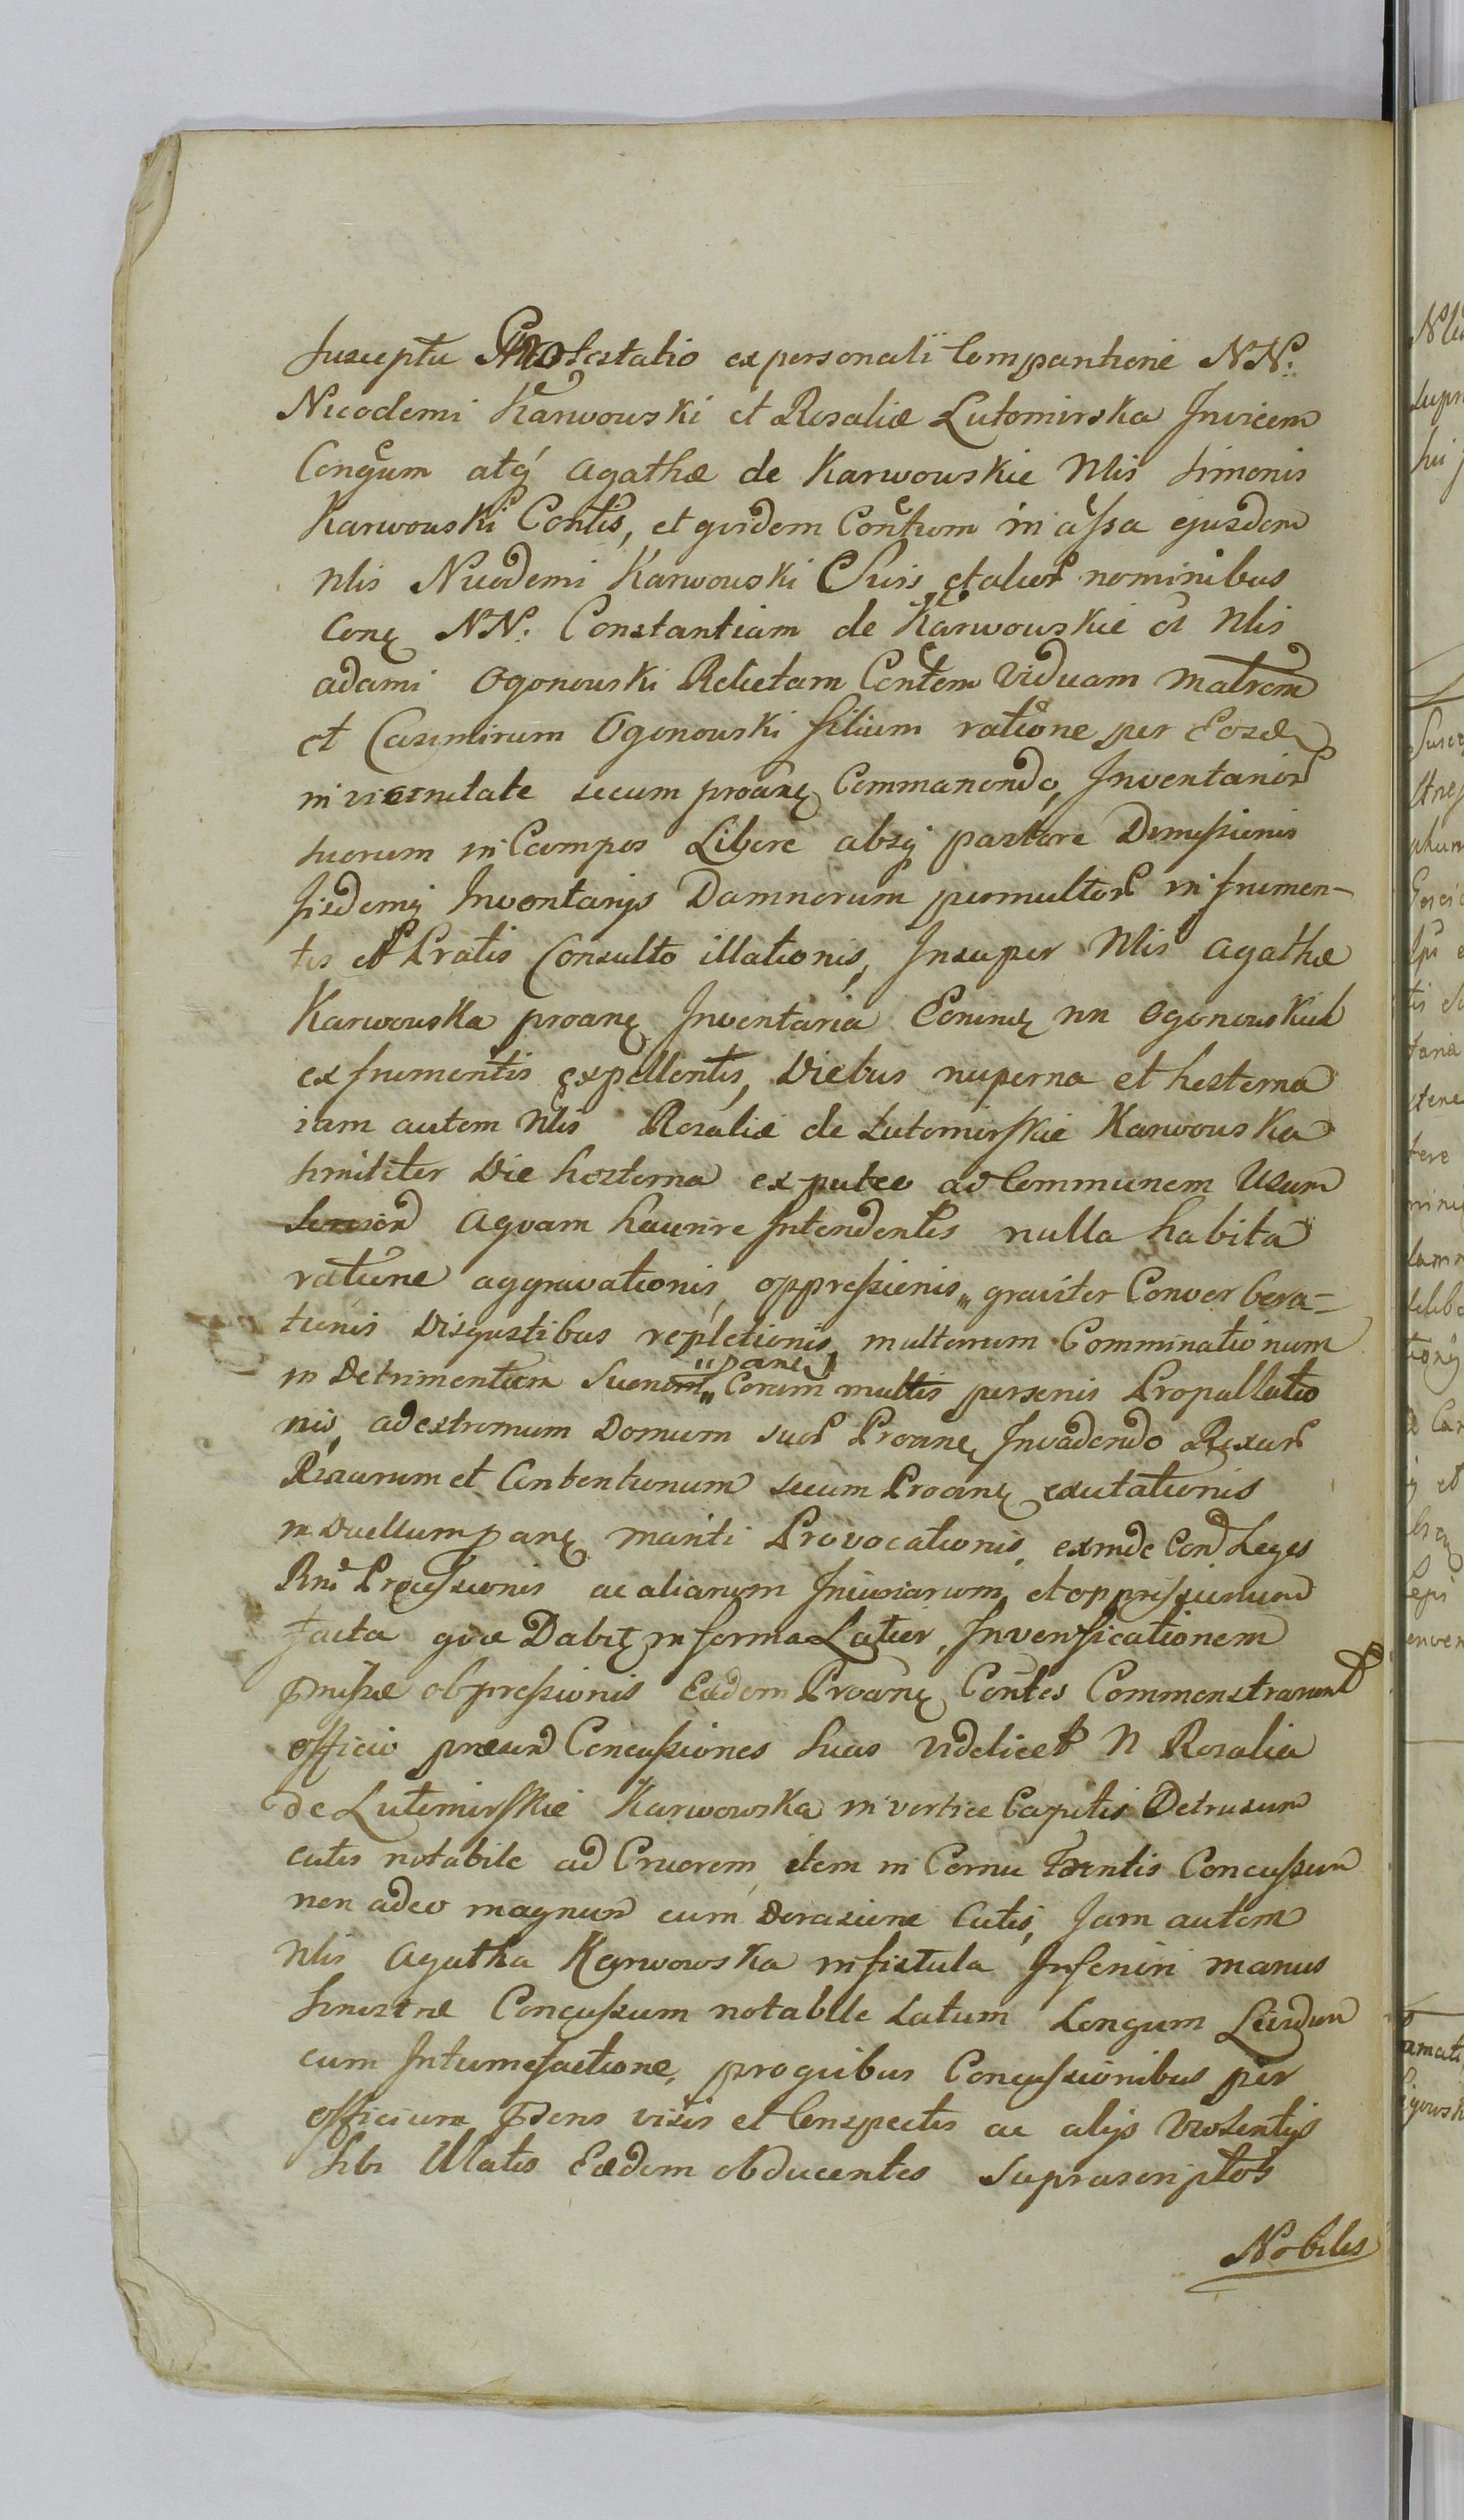 Suscepta Protestatio ex personali Comparitione NN:
Nicodemi Karwowski et Rosaliæ Lutomirska Invicem
Conǧum atq́ Agathæ de Karwowskie Nlis Simonis
Karwowski Contis, et quidem Contium in assa ejusdem
Nlis Nicodemi Karwowski Suis, et alior nominibus
Conę NN: Constantiam de Karwowskie ol Nlis
adami Ogonowski Relictam Contem Viduam Matrem
et Casimirum Ogonowski filium ratione per Eosd
in vicinitate secum proanę Commanendo, Inventarior
suorum in Campos Libere absq́ pastore Dimissionis
Iisdemq́ Inventarijs Damnorum permultor in frumen-
tis et Pratis Consulto illationis, Insuper Nlis Agathæ
Karwowska proanę Inventaria Eorumę nn Ogonowskich
ex frumentis expellentis, Diebus nuperna et hesterna
iam autem Nlis Rosaliæ de Lutomirskie Karwowska
similiter Die hesterna ex puteo ad Communem Usum
Aquam haurire Intendentis nulla habita
ratione aggravationis, oppressionis „ graviter Converbera=
tionis Disgustibus repletionis, multarum Comminationum
in Detrimentum Suenom „ panę „ Coram multis personis Propallatio
nis, ad extremum Domum suor Proanę Invadendo Rixar
Rixarum et Contentionum secum Proanę excitationis
in Duellum panę mariti Provocationis, exinde Con Leges
Rni Processionis ac aliarum Iniuriarum, et oppressionum
facta quæ Dabit in forma Latior, In verificationem
pmissæ obpressionis Eædem Proanę Contes Commonstrarunt
officio præsen Concussiones suas videlicet N Rosalia
de Lutomirskie Karwowska in vertice Capitis Detrusum
cutis notabile ad Cruorem, item in Cornu Frontis Concussum
non adeo magnum cum Derasione Cutis, Jam autem
Nlis Agatha Karwowska in fistula Inferiri manus
Sinistræ Concussum notabile Latum Longum Lividum
cum Intumefactione, pro quibus Concussionibus per
officium pdens visis et Conspectis ac alijs Violentijs
sibi Illatis Eædem obducentes Suprascriptos
Nobiles